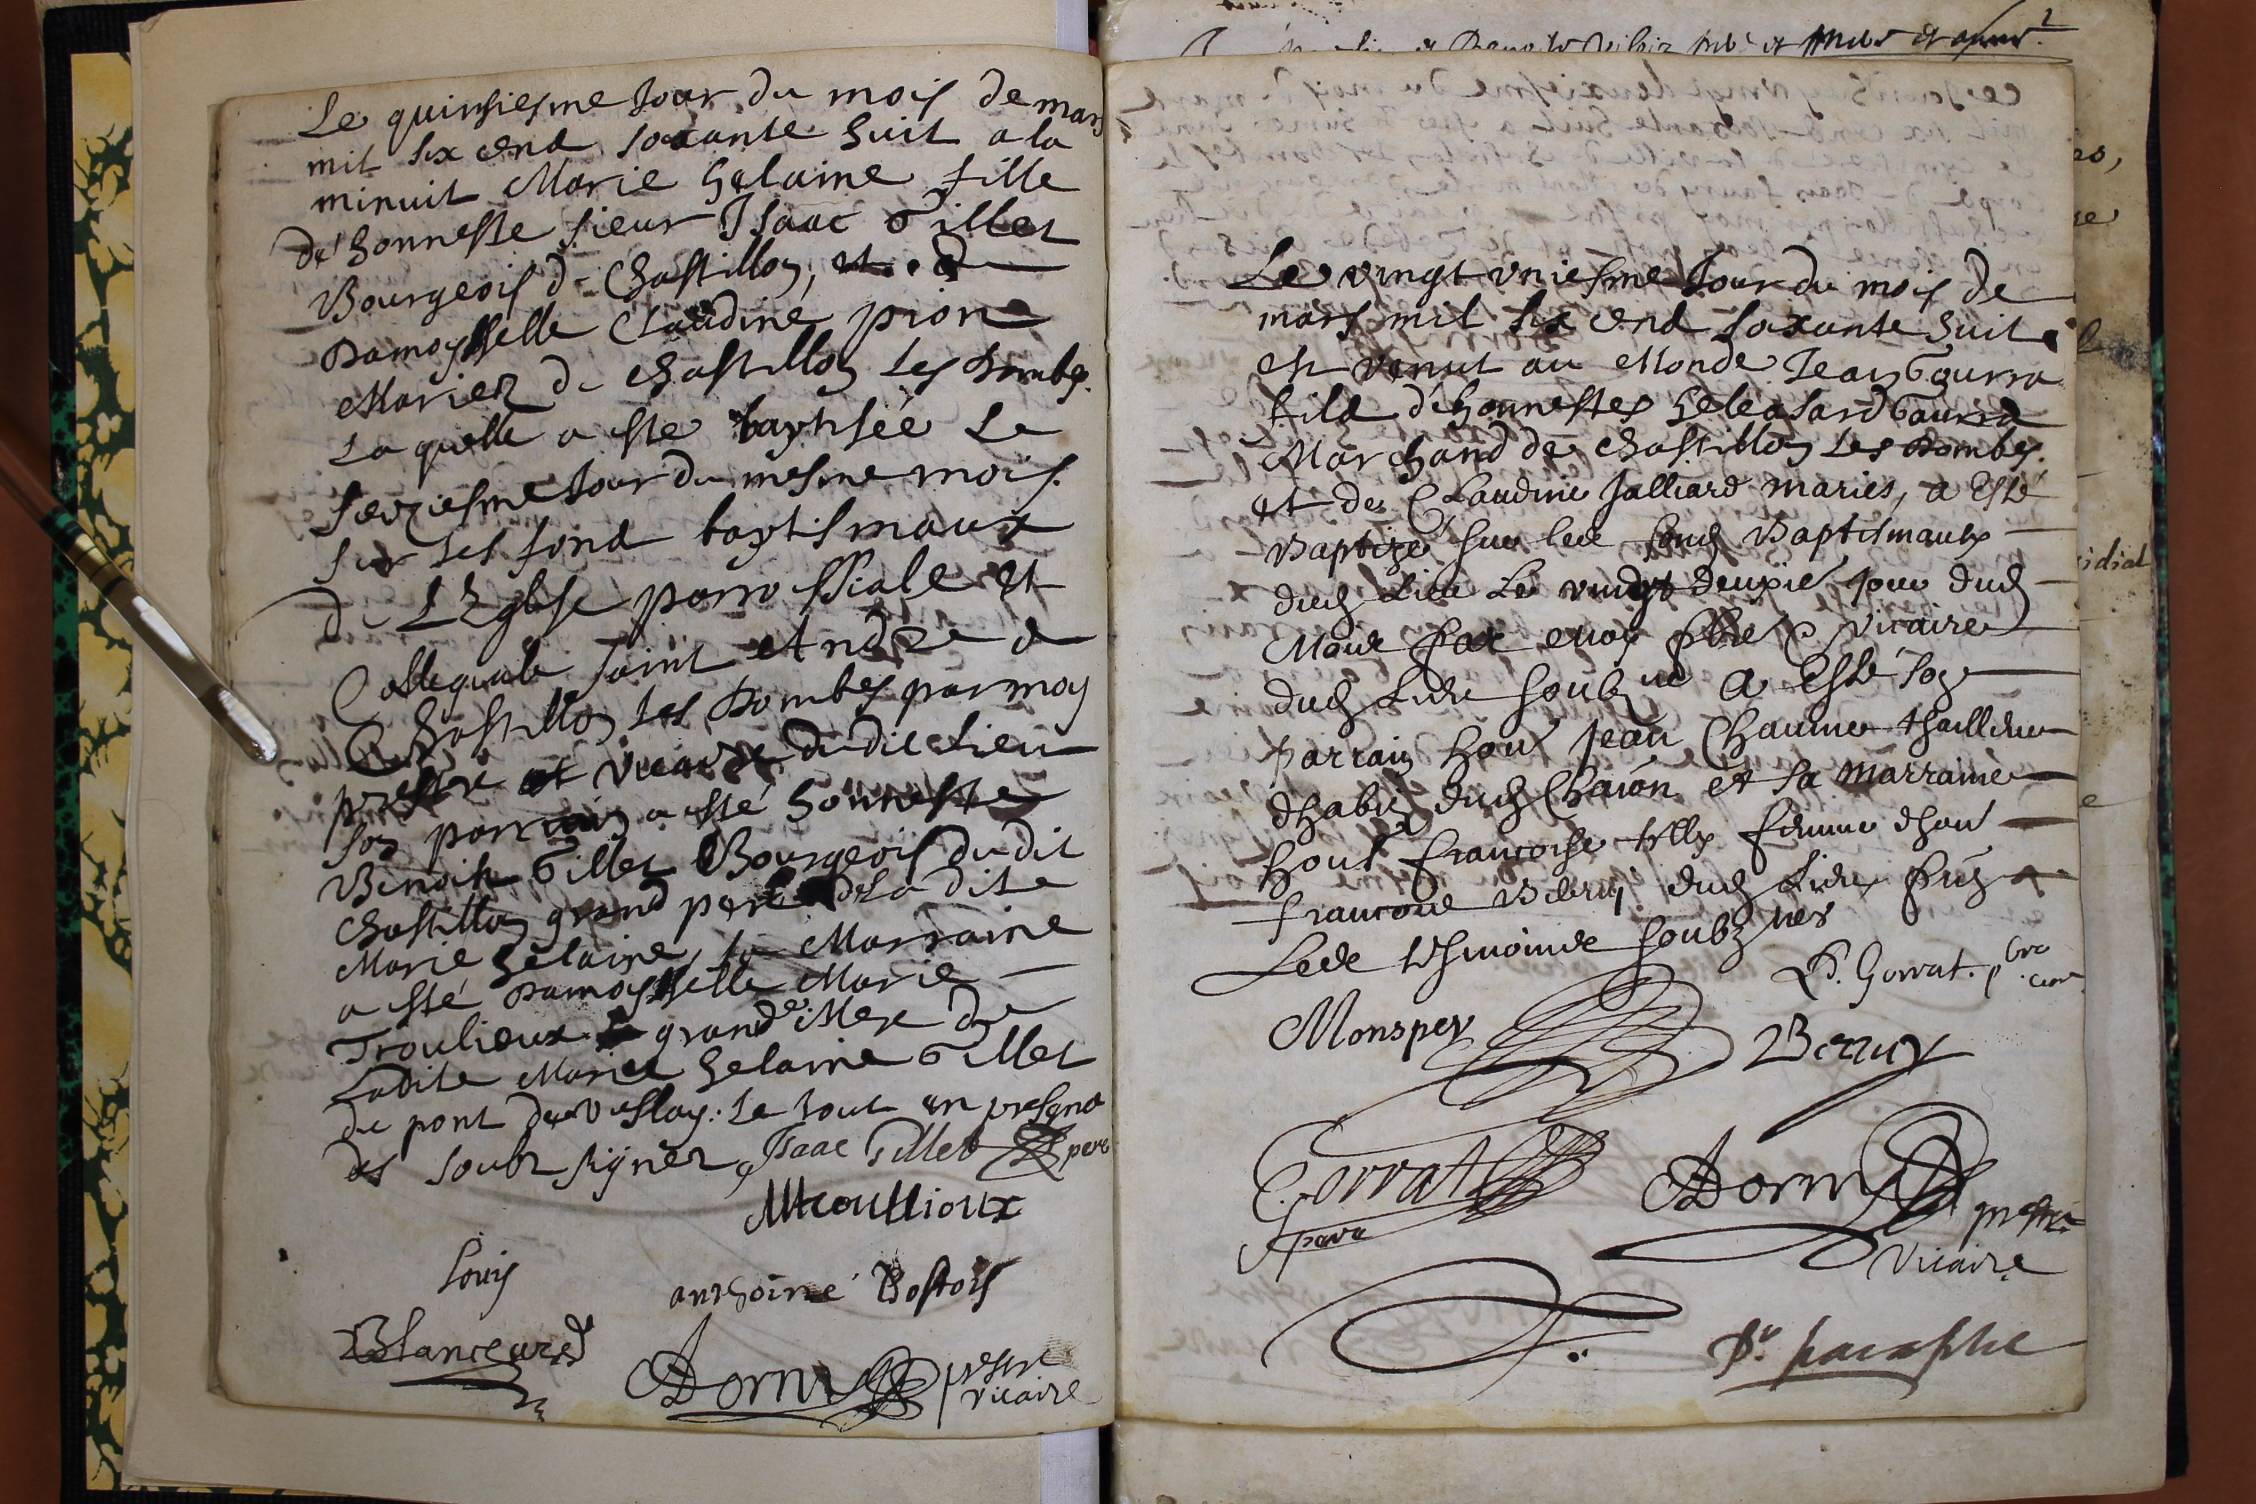 Le quinsiesme Jour du mois de mars
mil six cend soixante huit a la
minuit Marie helaine fille
de honneste sieur Isaac Tillet
Bourgeois de Chastillon, et de
Damoyselle Claudine pion
Mariez de Chastillon les Dombes.
La quelle a este baptisée Le
seiziesme Jour du mesme mois
sur les fond baptismaux
de L'Eglise parrossiale et
Collegiale saint Andre de
Chastillon les Dombes par moy
prestre et vicaire dudit Lieu
son parrain a esté honneste
Benoit Tillet Bourgeois dudit
Chastillon grand pere de la dite
Marie helaine, la Marraine
a esté Damoyselle Marie
Troulieux grande Mere de
Ladite Marie helaine Tillet
du pont de Veslay: le tout en presence
des soubz signéz, Isaac Tillet pere
MTroullioux
Louis
anthoine Bostois
Blancard
Dorni prestre
vicaire
Le vingt uniesme Jour du mois de
mars mil six cend soixante huit
est venut au Monde Jean Gourra
fils d'honnestes heleasard Gourra
Marchand de Chastillon Les Dombes.
et de Claudine Jalliard mariés, a Esté
Baptizé sur les fonds Baptismaulx
dud Lieu Le vingt deuxie Jour dud
Mois par moy pbre vicaire
dud Lieu soubzne a Esté son
parrain hon Jean Chaume thailleur
dhabis dud Chaôn et sa Marraine
hons francoise femme dhon
francois Berruy dud Lieu
Lesd tesmoins soubznes
B. Gorrat. pbre
Monspey
Berruy
Gorrat
pere
Dorni prestre
vicaire
Pr. paraphe